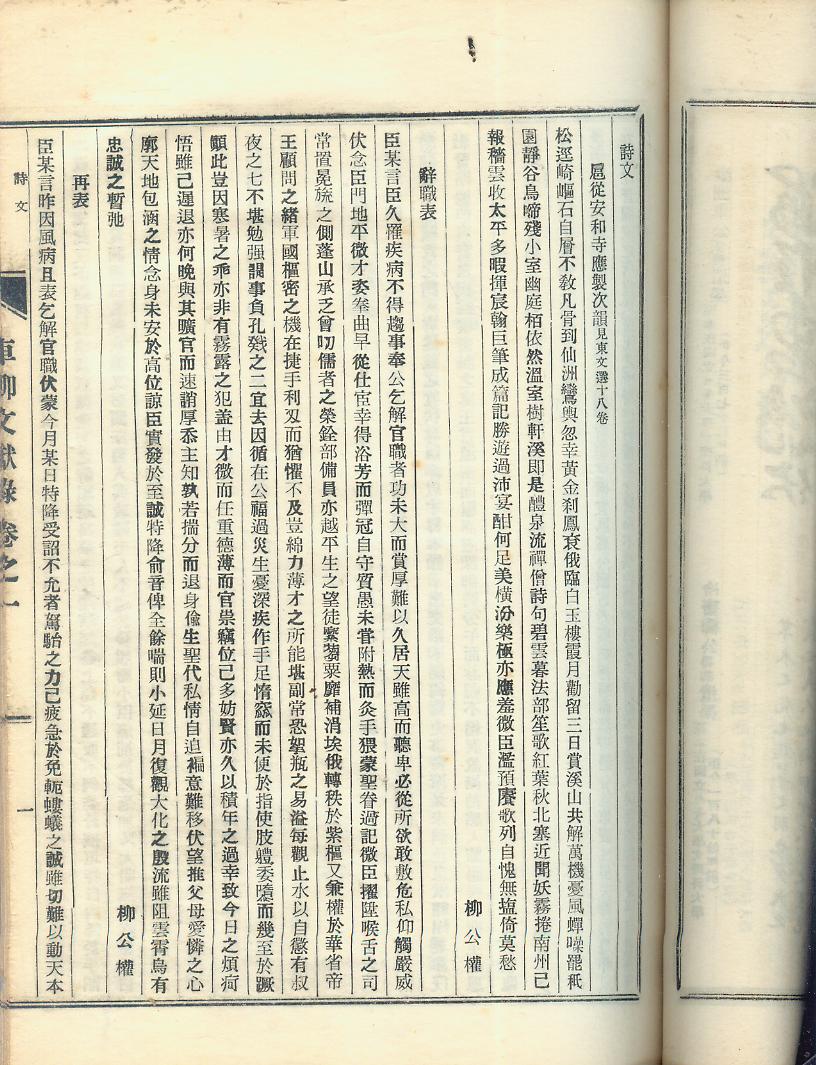 詩文
扈從安和寺應製次韻見東文選十八卷
松逕崎嶇石自層不敎凡骨到仙洲鸞輿忽幸黃金刹鳳衮俄臨白玉樓霞月勸留三日賞溪山共解萬機憂風蟬噪罷秖
園靜谷鳥啼殘小室幽庭栢依然溫室樹軒溪卽是醴泉流禪僧詩句碧雲暮法部笙歌紅葉秋北塞近聞妖霧捲南州已
報穡雲收太平多暇揮宸翰巨筆成篇記勝遊過沛宴酣何足美橫汾樂極亦應羞微臣濫預賡歌列自愧無塩倚莫愁
柳公權
辭職表
臣某言臣久罹疾病不得趨事奉公乞解官職者功未大而賞厚難以久居天雖高而聽卑必從所欲敢敷危私仰觸嚴威
伏念臣門地平微才姿拳曲早從仕宦幸得浴芳而彈冠自守質愚未甞附熱而灸手猥蒙聖眷過記微臣擢陞喉舌之司
常置冕旒之側蓬山承乏曾叨儒者之榮銓部備員亦越平生之望徒縻蒭粟靡補涓埃俄轉秩於紫樞又兼權於華省帝
王顧問之緖軍國樞密之機在捷手利刄而猶懼不及豈綿力薄才之所能堪副常恐挈瓶之易溢每觀止水以自懲有叔
夜之七不堪勉强誤事負孔戣之二宜去因循在公福過災生憂深疾作手足惰窳而未便於指使肢軆委墮而幾至於蹶
顚此豈因寒暑之乖亦非有霧露之犯盖由才微而任重德薄而官崇竊位己多妨賢亦久以積年之過幸致今日之煩疴
悟雖己遲退亦何晚與其曠官而速誚厚忝主知孰若揣分而退身偸生聖代私情自迫褊意難移伏望推父母愛憐之心
廓天地包涵之情念身未安於高位諒臣實發於至誠特降俞音俾全餘喘則小延日月復觀大化之殷流雖阻雲霄烏有
忠誠之暫弛
柳公權
再表
臣某言昨因風病且表乞解官職伏蒙今月某日特降受詔不允者駑駘之力己疲急於免軛螻蟻之誠雖切難以動天本
詩文
車柳文獻錄卷之一
一